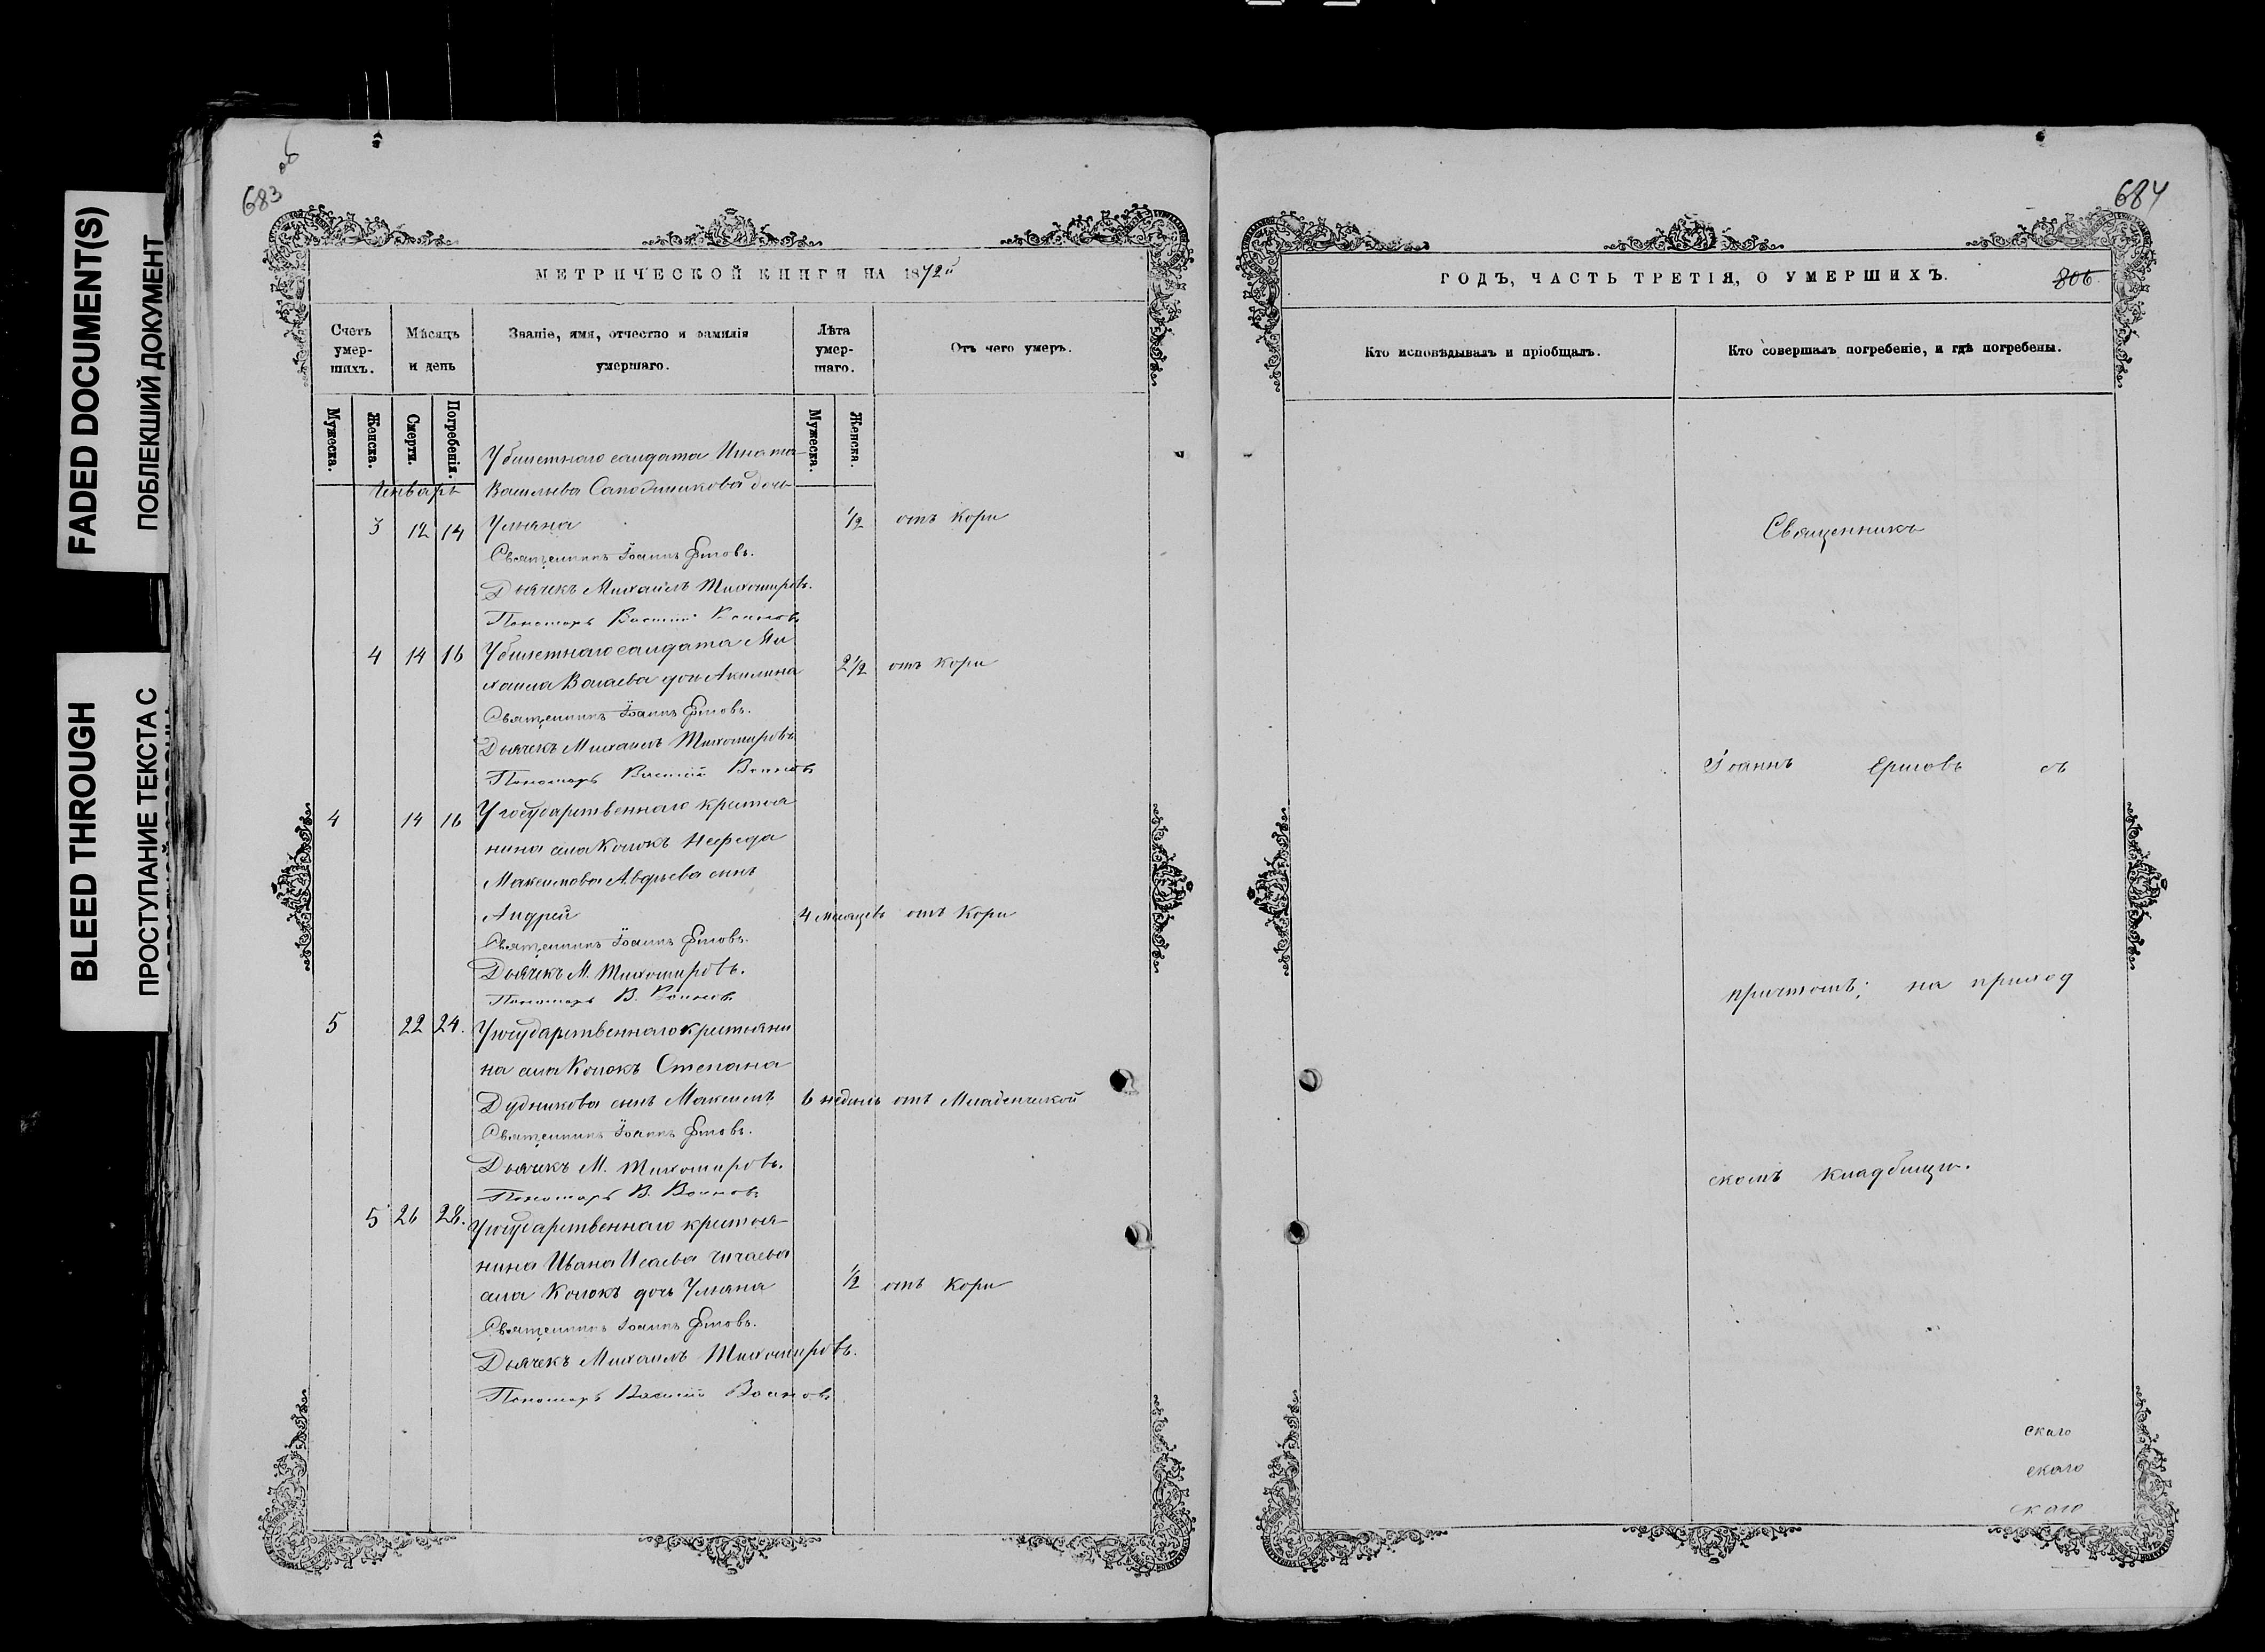 FADED DOCUMENT(S)
ПОБЛЕКШИЙ ДОКУМЕНТ
BLEED THROUGH
ПРОСТУПАНИЕ ТЕКСТА С
683 об
МЕТРИЧЕСКОЙ КНИГИ НА 1872й
Счетъ умер-шихъ.
Мѣсяцъ и день
Званіе, имя, отчество и фамилія умершаго.
Лѣта умер-шаго.
Отъ чего умеръ.
Мужеска.
Женска.
Смерти.
Погребенія.
Мужеска.
Женска.
У билетнаго солдата Игната
Январь Васильева Сапожникова дочь
3 12 14 Ульяна 1/2 отъ кори
Священникъ Іоаннъ Ершовъ.
Дьячекъ Михаилъ Тихомировъ.
Пономарь Василий Воиновъ
4 14 16 У билетнаго солдата Ми
хаила дочь Акилина 2 1/2 отъ кори
Священникъ Іоаннъ Ершовъ.
Дьячекъ Михаилъ Тихомировъ
Пономарь Василий Воиновъ
4 14 16 У государственнаго крестья
нина села Колокъ
Максимова Авдѣева сынъ
Андрей 4 месяцевъ отъ Кори
Священникъ Іоаннъ Ершовъ.
Дьячекъ М. Тихомировъ.
Пономарь В. Воиновъ
5 22 24. У государственнаго крестьяни
на села Колокъ Степана
Дудникова сынъ Максимъ 6 недѣль отъ Младенческой
Священникъ Іоаннъ Ершовъ.
Дьячекъ М. Тихомировъ.
Пономарь В. Воиновъ
5 26 28. У государственнаго крестья-
нина Ивана Исаева Чичаева
села Колокъ дочь Ульяна 1/2 отъ кори
Священникъ Іоаннъ Ершовъ.
Дьячекъ Михаилъ Тихомировъ.
Пономарь Василий Воиновъ
684
ГОДЪ, ЧАСТЬ ТРЕТІЯ, О УМЕРШИХЪ.
806
Кто исповѣдывалъ и пріобщалъ.
Кто совершалъ погребеніе, и гдѣ погребены.
Священникъ
Іоаннъ Ершовъ съ
причтомъ; на приход
скомъ кладбищѣ.
скаго
скаго
скаго